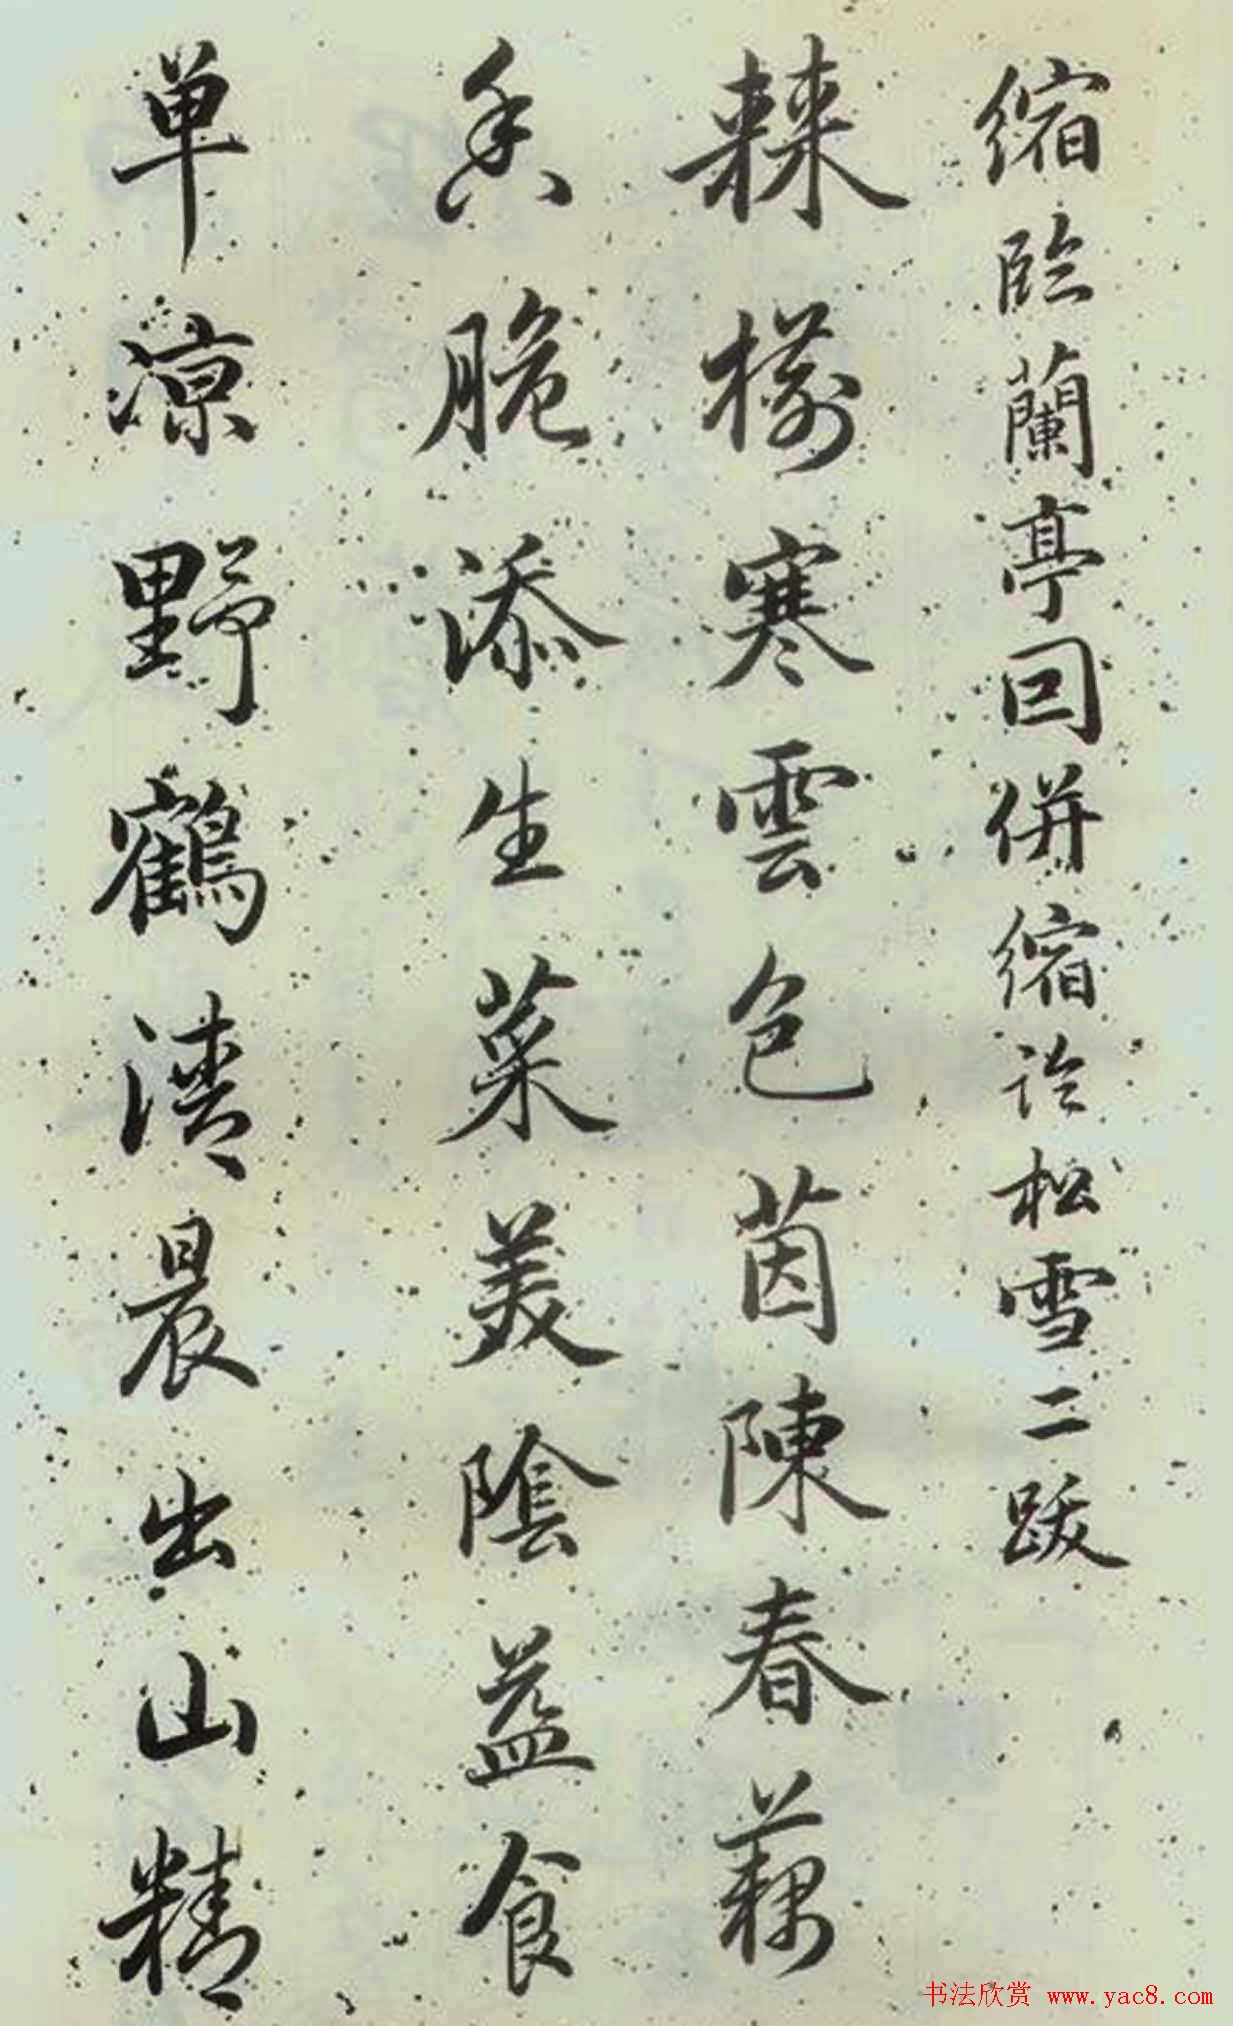 縮臨蘭亭回併縮松雪二跋
棘樹寒雲色茵陳春藕
香脆添生菜美陰益食
单涼野鶴清晨出山精
书法欣赏 www.yac8.com